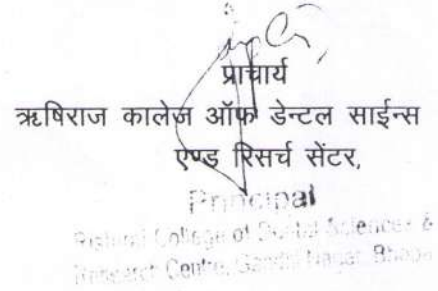 प्राचार्य
ऋषिराज कालेज ऑफ डेन्टल साईन्स
एण्ड रिसर्च सेंटर,
Principal
Rishiraj College of Dental Sciences &
Research Centre, Gandhi Nagar, Bhopa